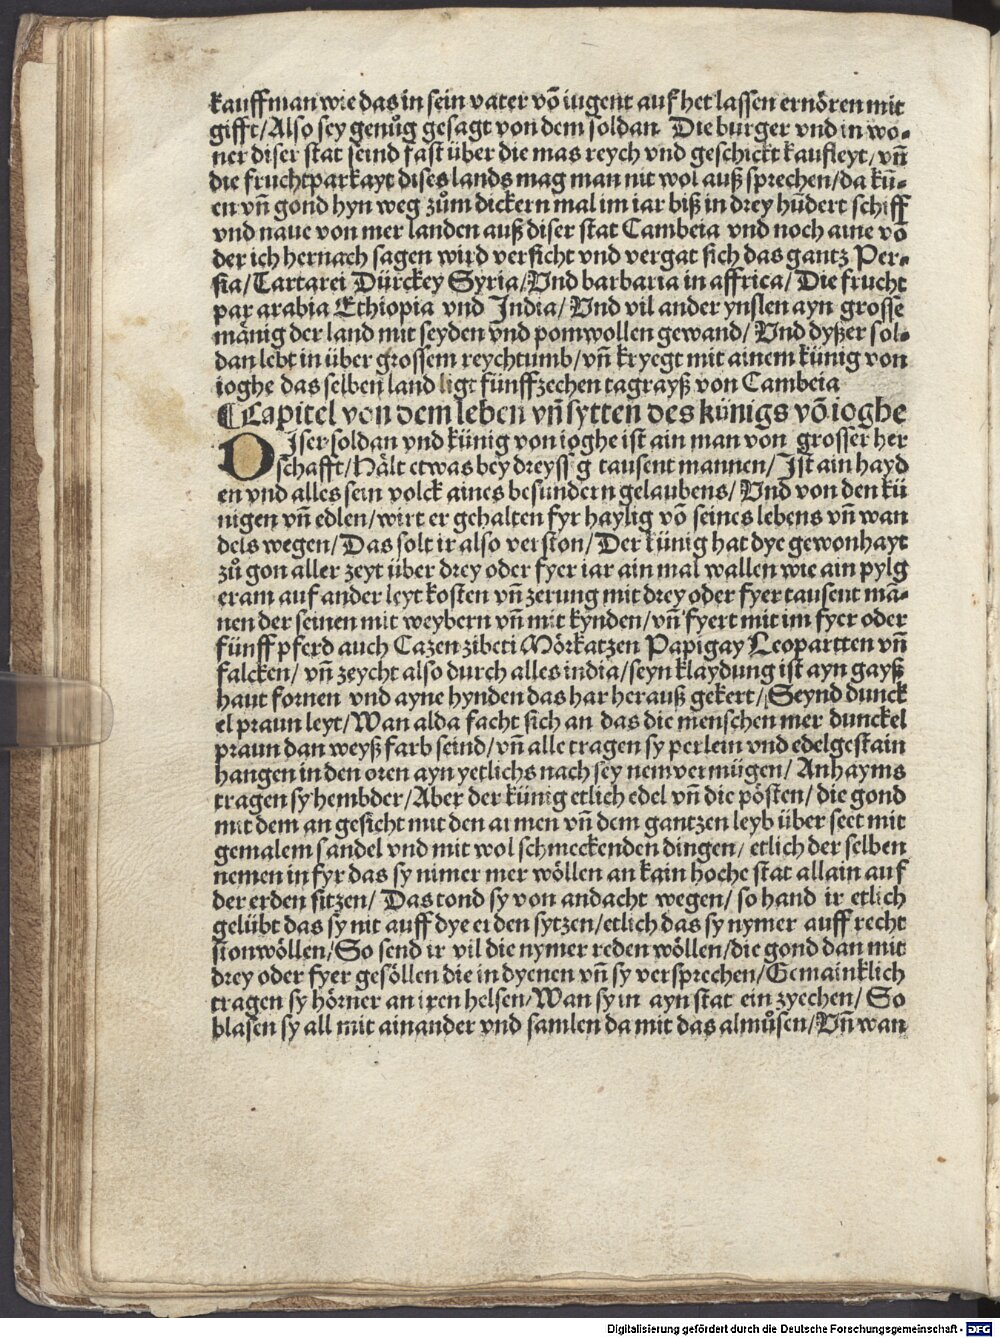 kauffman wie das in sein vater võ iugent auf het lassen ernören mit
gifft/Also sey genůg gesagt von dem soldan Die burger vnd in wo-
ner diser stat seind fast über die mas reych vnd geschickt kaufleyt/vñ
die fruchtparkayt dises lands mag man nit wol auß sprechen/da kũ-
en vñ gond hyn weg zům dickern mal im iar biß in drey hũdert schiff
vnd naue von mer landen auß diser stat Cambeia vnd noch aine võ
der ich hernach sagen wird versicht vnd vergat sich das gantz Per-
sia/Tartarei Dürckey Syria/Vnd barbaria in affrica/Die frucht
par arabia Ethiopia vnd India/Vnd vil ander ynslen ayn grosse
mãnig der land mit seyden vnd pomwollen gewand/Vnd dyßer sol-
dan lebt in über grossem reychtumb/vñ kryegt mit ainem künig von
ioghe das selben land ligt fünffzechen tagrayß von Cambeia
¶Capitel von dem leben vñ sytten des künigs võ ioghe
DJser soldan vnd künig von ioghe ist ain man von grosser her
schafft/Hãlt etwas bey dreyssig tausent mannen/Jst ain hayd
en vnd alles sein volck aines besundern gelaubens/Vnd von den kü
nigen vñ edlen/wirt er gehalten fyr haylig võ seines lebens vñ wan
dels wegen/Das solt ir also verston/Der künig hat dye gewonhayt
zů gon aller zeyt über drey oder fyer iar ain mal wallen wie ain pylg
eram auf ander leyt kosten vñ zerung mit drey oder fyer tausent mã-
nen der seinen mit weybern vñ mit kynden/vñ fyert mit im fyer oder
fünff pferd auch Cazen zibeti Mörkatzen Papigay Leopartten vñ
falcken/ vñ zeycht also durch alles india/seyn klaydung ist ayn gayß
haut fornen vnd ayne hynden das har herauß gekert/Seynd dunck
el praun leyt/Wan alda facht sich an das die menschen mer dunckel
praun dan weyß farb seind/vñ alle tragen sy perlein vnd edelgestain
hangen in den oren ayn yetlichs nach sey nem vermügen/Anhayms
tragen sy hembder/Aber der künig etlich edel vñ die pösten/die gond
mit dem an gesicht mit den armen vñ dem gantzen leyb über seet mit
gemalem sandel vnd mit wol schmeckenden dingen/etlich der selben
nemen in fyr das sy nimer mer wöllen an kain hoche stat allain auf
der erden sitzen/Das tond sy von andacht wegen/so hand ir etlich
gelübt das sy nit auff dye erden sytzen/etlich das sy nymer auff recht
ston wöllen/So send ir vil die nymer reden wöllen/die gond dan mit
drey oder fyer gesöllen die in dyenen vñ sy versprechen/Gemainklich
tragen sy hörner an iren helsen/Wan sy in ayn stat ein zyechen/So
blasen sy all mit ainander vnd samlen da mit das almůsen/Vñ wan
Digitalisierung gefördert durch die Deutsche Forschungsgemeinschaft - DFG